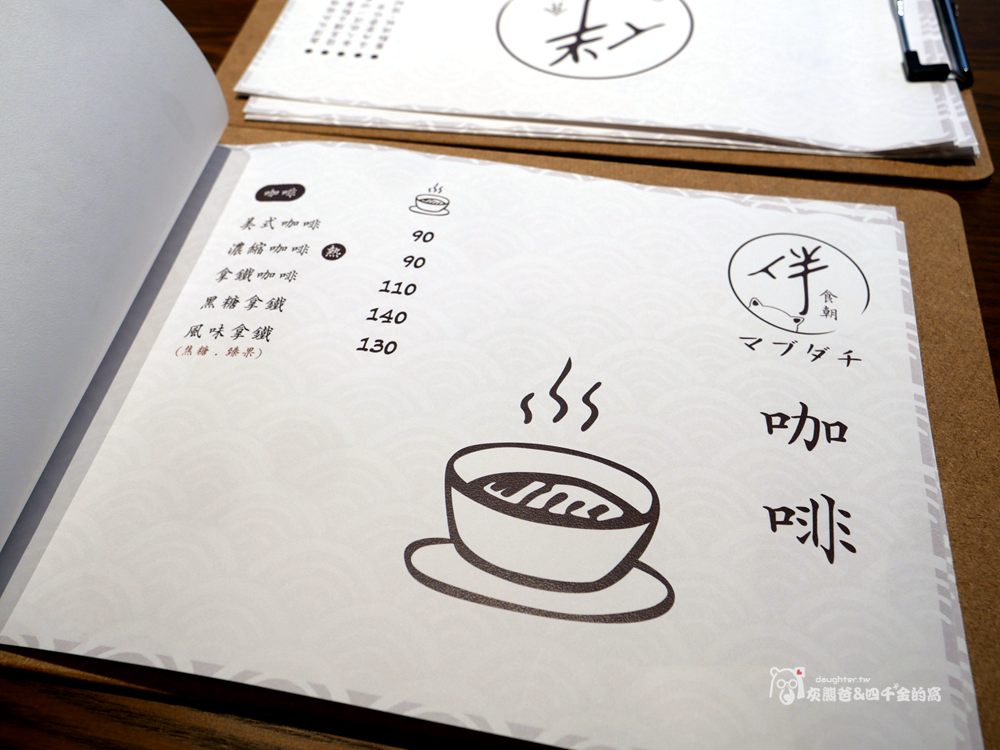 伴
食
咖啡
美式咖啡 90
濃縮咖啡 熱 90
拿鐵咖啡 110
黑糖拿鐵 140
風味拿鐵 130
(焦糖.臻果)
伴
食朝
マブダチ
咖啡
daughter.tw
灰熊爸&四千金的窩